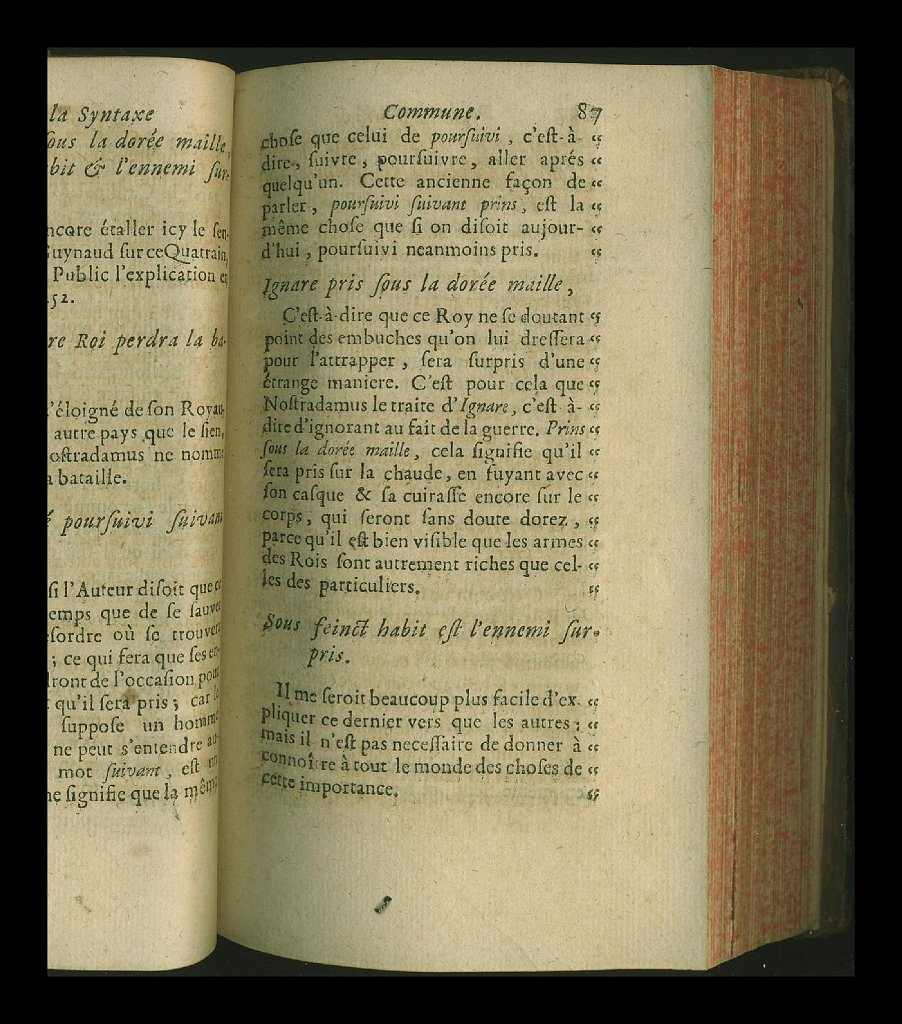 la Syntaxe
ſous la dorée maille,
bit & l'ennemi ſur-
ncore étaller icy le ſen-
Guynaud ſur ce Quatrain,
Public l'explication
52.
re Roi perdra la ba-
'éloigné de ſon Royau-
autre pays que le ſien,
oſtradamus ne nomme
a bataille.
é pourſuivi ſuivant
ſi l'Auteur diſoit que
emps que de ſe ſauver
ſordre où ſe trouvent
; ce qui fera que ſes
ront de l'occaſion pour
qu'il ſera pris ; car le
ſuppoſe un homme
ne peut s'entendre
mot ſuivant, eſt un
ne ſignifie que la même
Commune. 87
choſe que celui de pourſuivi, c'eſt-à- “
dire, ſuivre, pourſuivre, aller aprés “
quelqu'un. Cette ancienne façon de “
parler, pourſuivi ſuivant prins, eſt la “
même choſe que ſi on diſoit aujour- “
d'hui, pourſuivi neanmoins pris. “
Ignare pris ſous la dorée maille,
C'eſt-à-dire que ce Roy ne ſe doutant “
point des embuches qu'on lui dreſſera “
pour l'attrapper, ſera ſurpris d'une “
étrange maniere. C'eſt pour cela que “
Noſtradamus le traite d'Ignare, c'eſt-à- “
dire d'ignorant au fait de la guerre. Prins “
ſous la dorée maille, cela ſignifie qu'il “
ſera pris ſur la chaude, en fuyant avec “
ſon caſque & ſa cuiraſſe encore ſur le “
corps, qui ſeront ſans doute dorez, “
parce qu'il eſt bien viſible que les armes “
des Rois ſont autrement riches que cel- “
les des particuliers. “
Sous feinct habit eſt l'ennemi ſur-
pris.
Il me ſeroit beaucoup plus facile d'ex- “
pliquer ce dernier vers que les autres ; “
mais il n'eſt pas neceſſaire de donner à “
connoître à tout le monde des choſes de “
cette importance. “